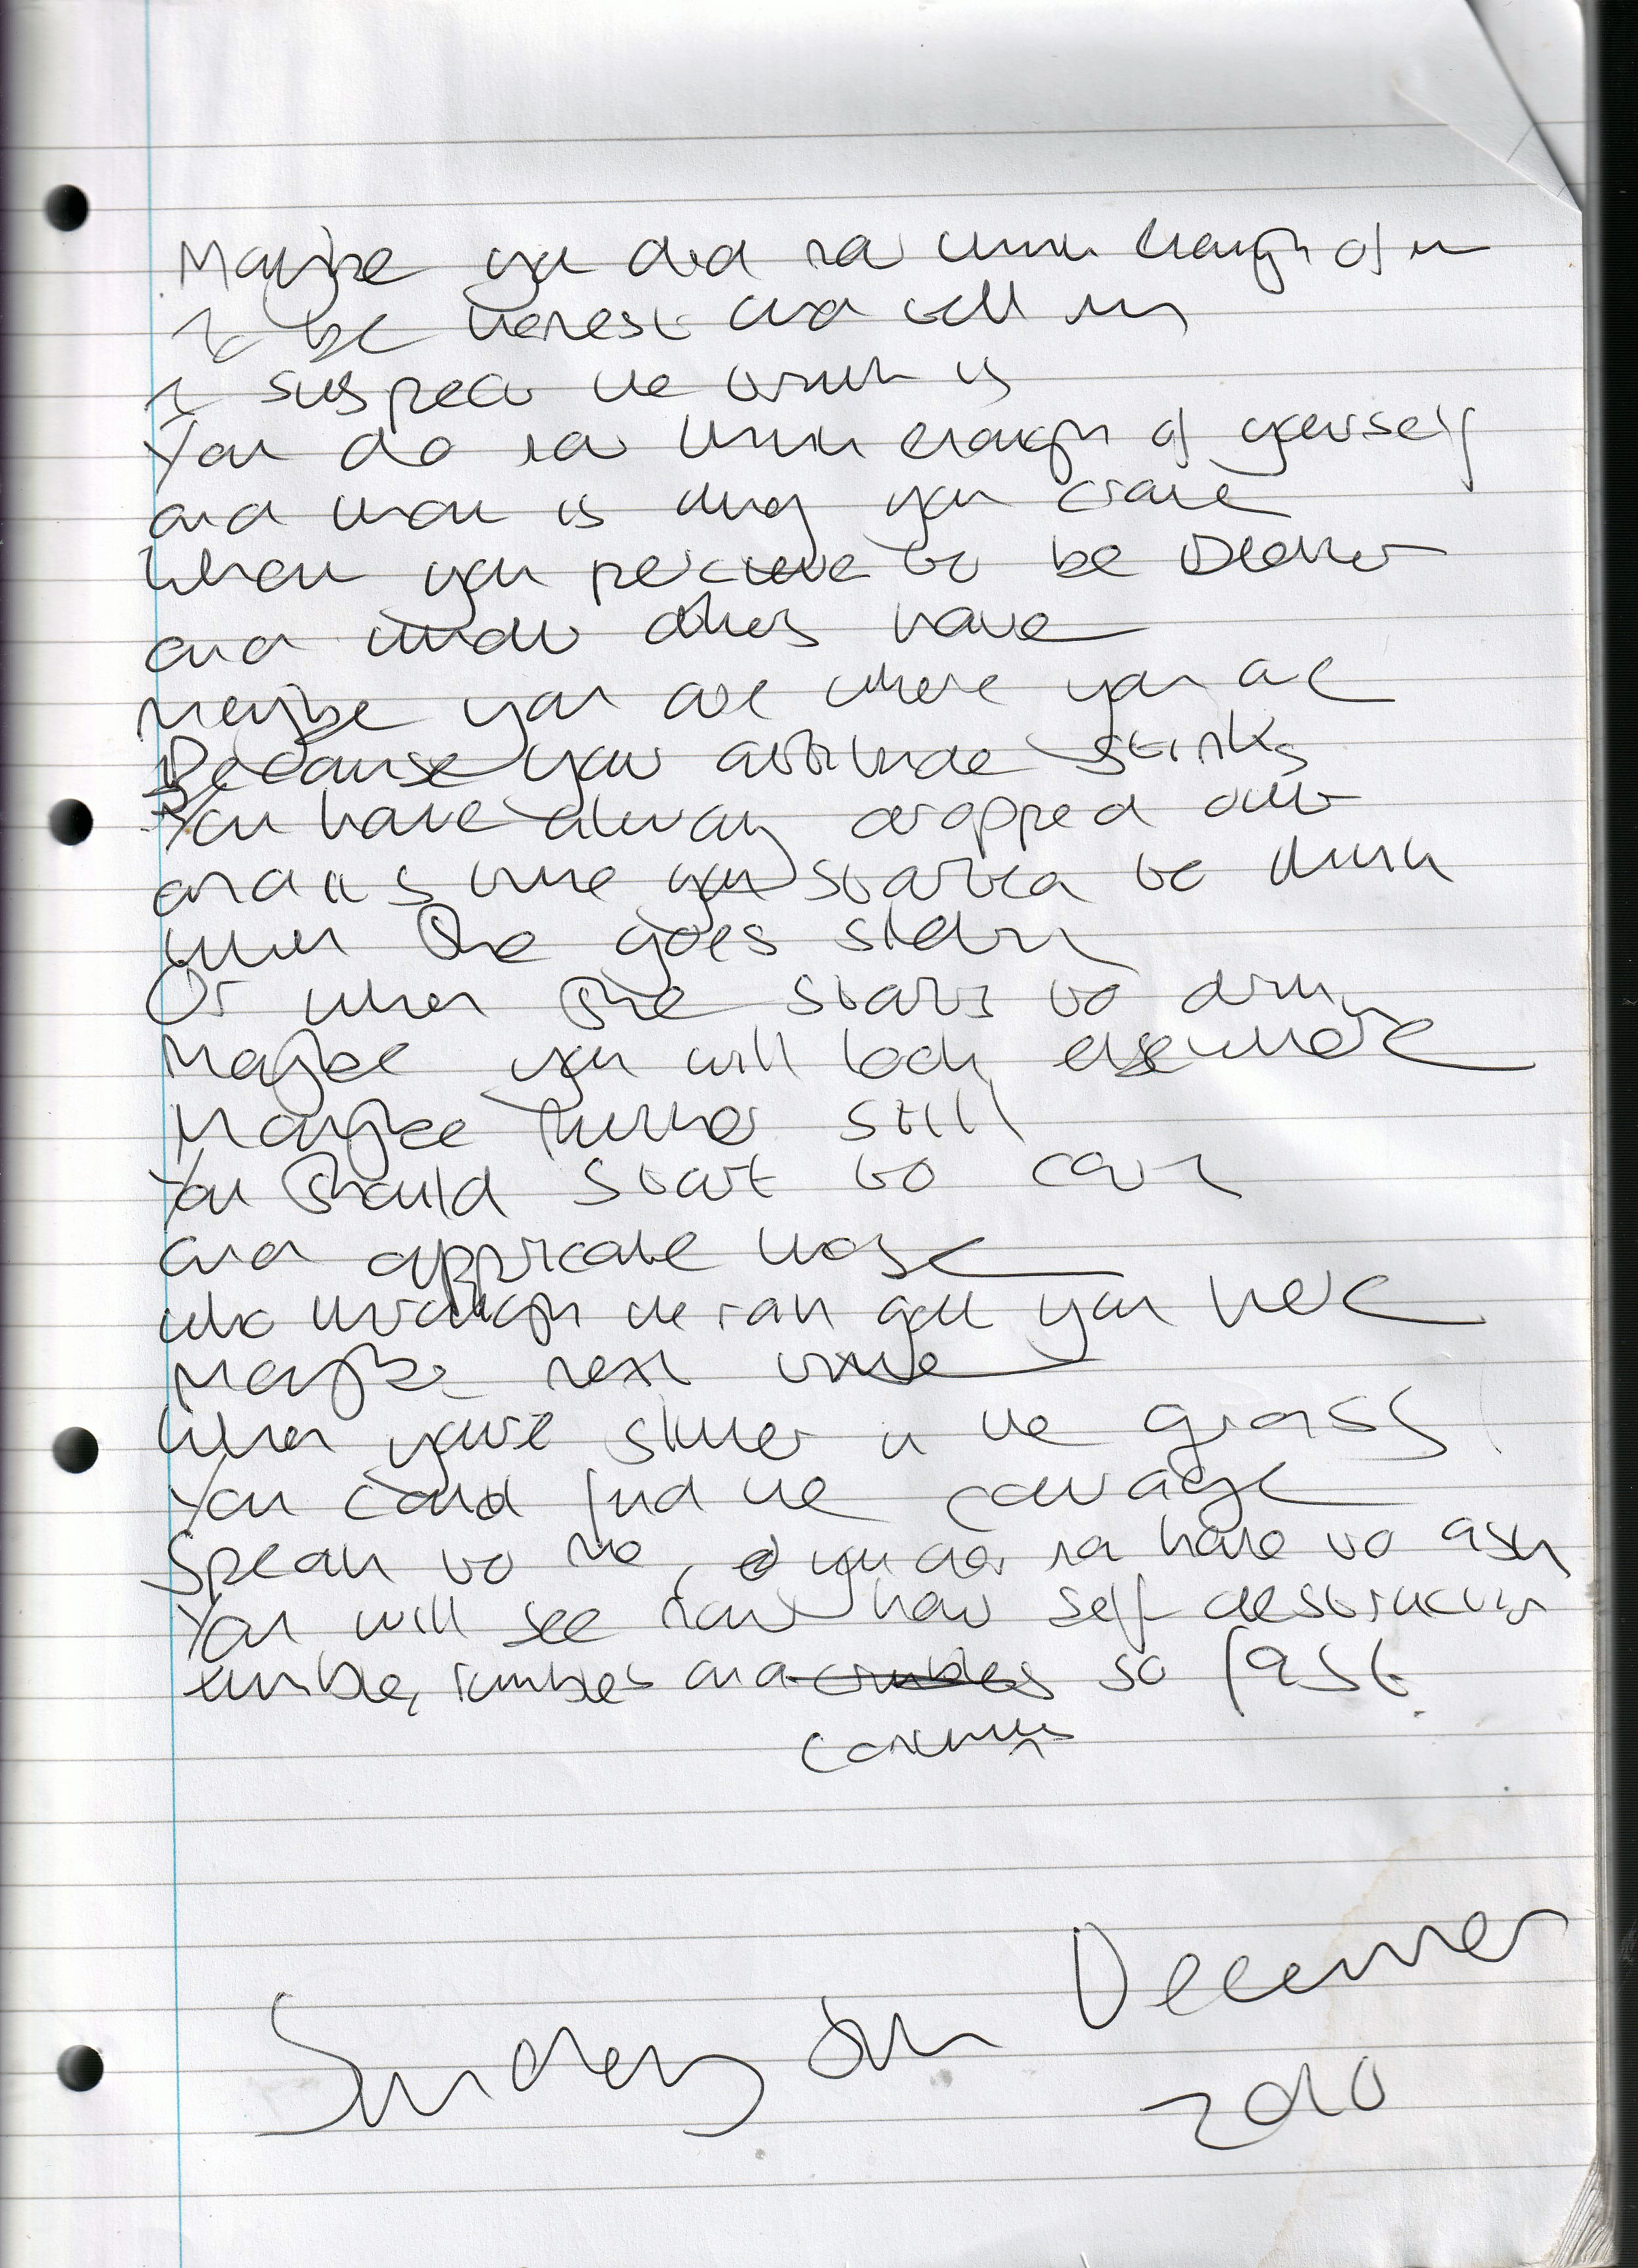 Maybe you did not think enough of me
to be honest and tell me
I suspect the truth is
You do not think enough of yourself
and that is why you crave
What you percieve to be Better
and what others have
Maybe you are where you are
Because your attitude stinks
You have always dropped out
and it is time you started to think
when She goes
Or when She starts to
Maybe you will look elsewhere
Maybe further still
You Should start to care
and appricate those
who through the rain got you here
Maybe next time
When youre in the grass
You could find the courage
Speak to me, you do not have to ask
You will see how self destruction
tumble, rumbles and crumbles so fast.
continues
Sunday 5th December
2010